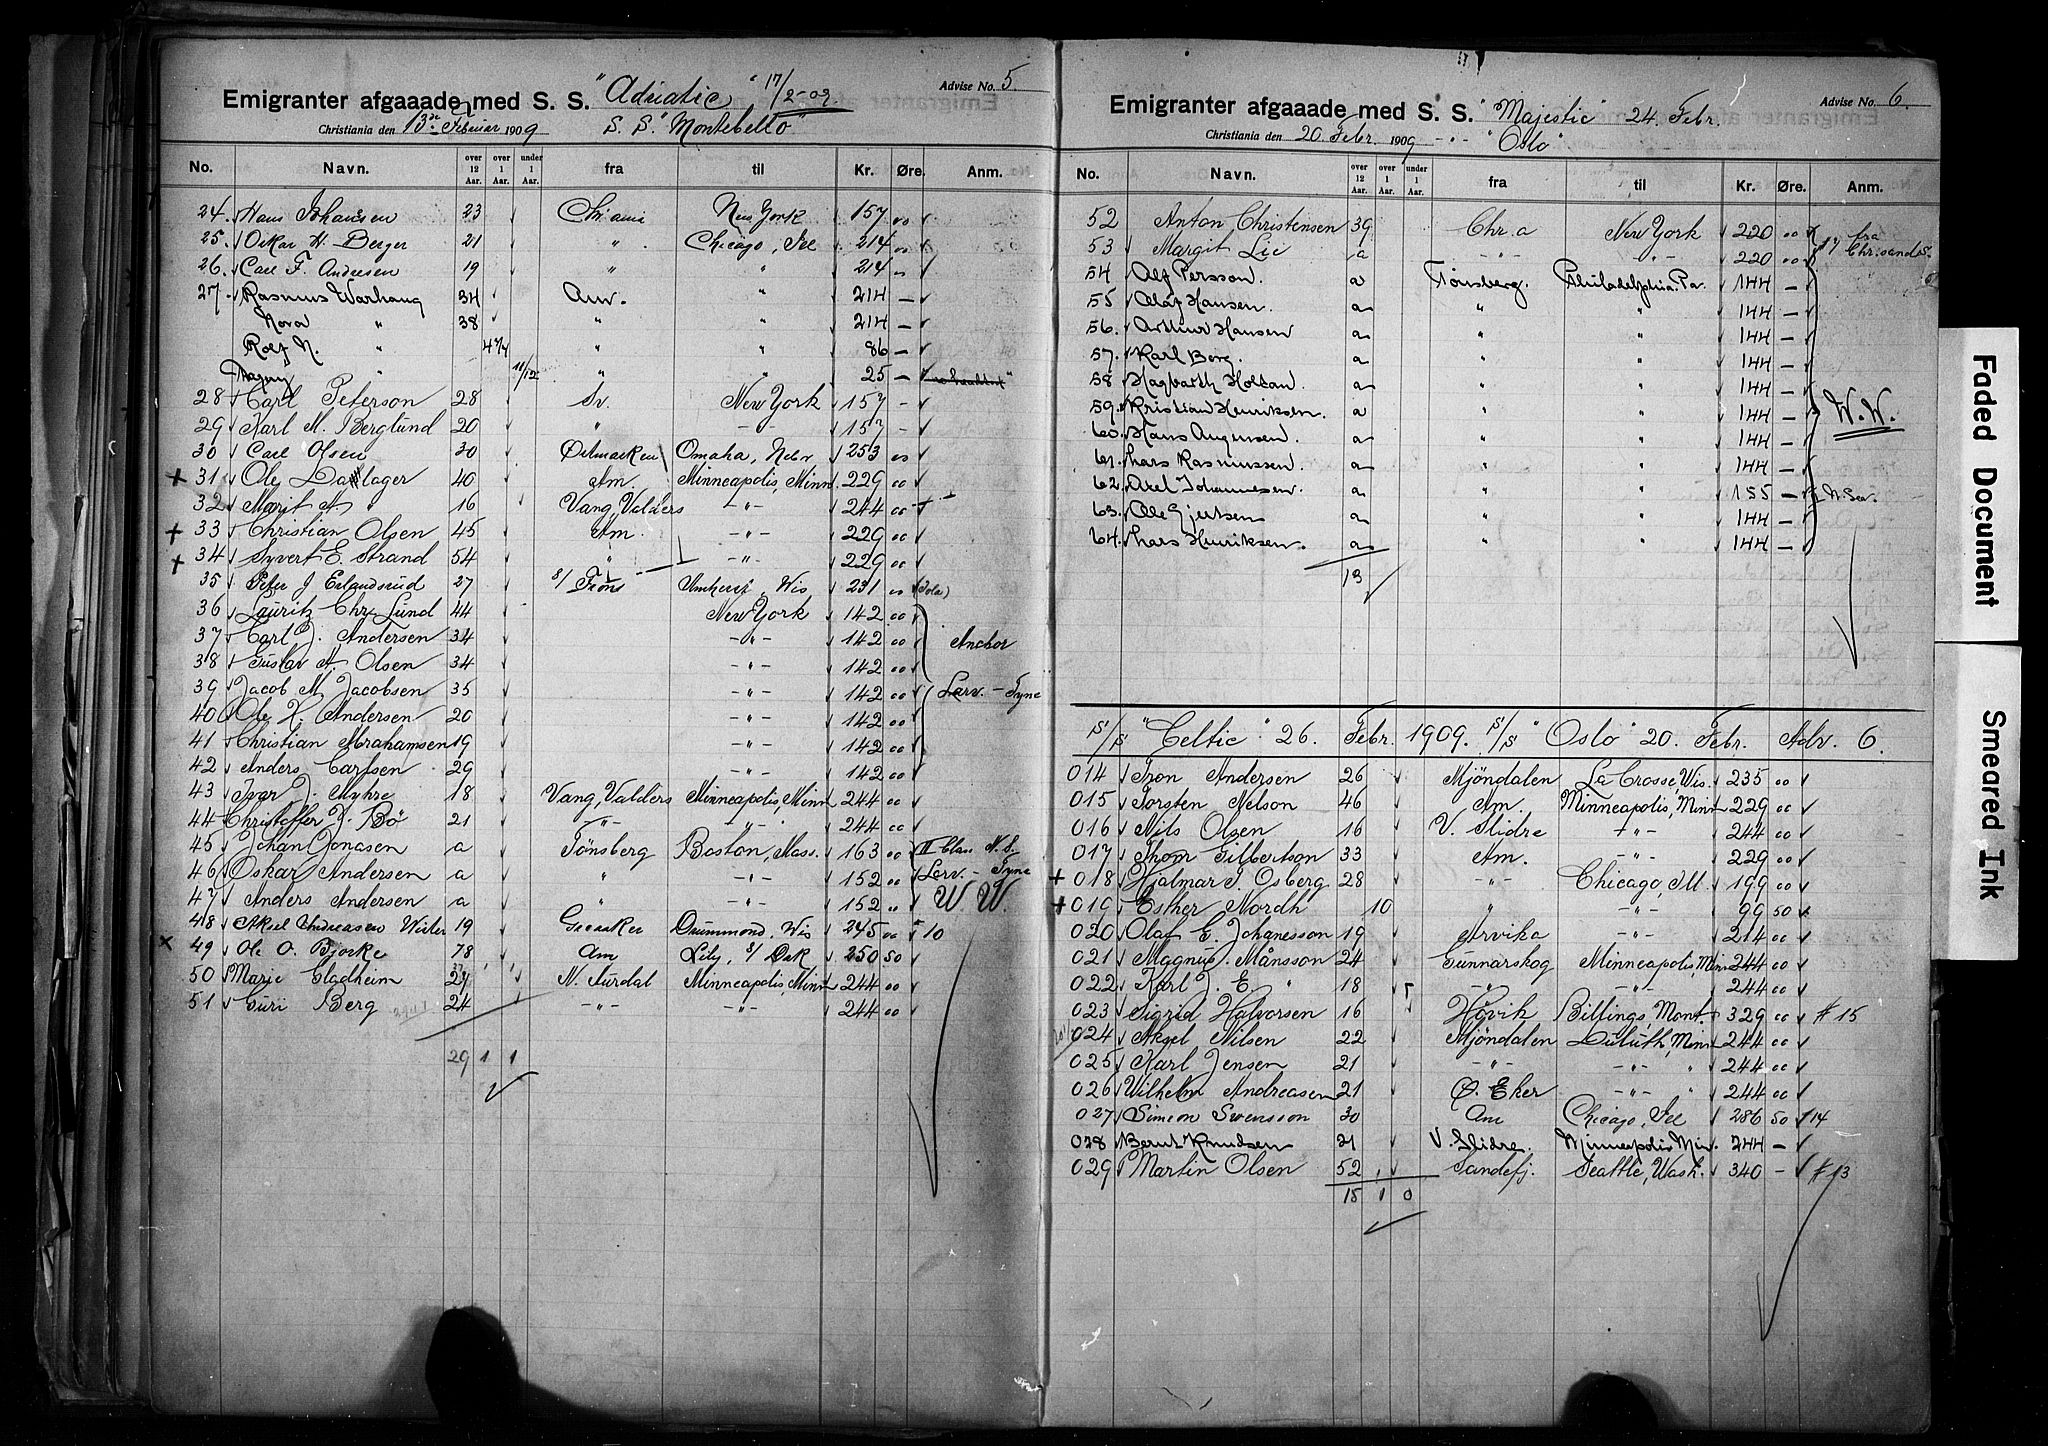 Advise No. 5
Emigranter afgaaade med S. S. "Adriatic" 17/2-09.
Christiania den 13de Februar 1909 S. S. "Montebello"
No. Navn. over 12 Aar. over 1 Aar. under 1 Aar. fra til Kr. Øre. Anm.
24. Hans Johansen 23 Chiania New York 157 00
25. Oskar H. Berger 21 " Chicago, Ill 214 00
26. Carl F. Andresen 19 " " 214 00
27. Rasmus Warhaug 34 Am. " 214 —
Nora " 38 " " 214 —
Rolf N. " 4 3/4 " " 86 —
Magny " 11/12 " " 25 —
28 Carl Peterson 28 Sv. New York 157 -
29 Karl M. Berglund 20 " -"- 157 -
30 Carl Olsen 30 Omaha, Nebr 253 00
+ 31 Ole Dallager 40 Am. Minneapolis, Minn 229 00
32 Marit A. " 16 Vang, Valders -"- 244 00
+ 33 Christian Olsen 45 Am. -"- 229 00
+ 34 Syvert E. Strand 54 " -"- 229 00
35 Peter J Erlandsrud 27 S/ Frons Amherst, Wis 231 00 (Iola)
36 Lauritz Chr. Lund 44 New York 142 00
37 Carl J. Andersen 34 -"- 142 00 Anchor
38 Gustav A. Olsen 34 -"- 142 00
39 Jacob M. Jacobsen 35 -"- 142 00 Larv. - Tyne
40 Ole K. Andersen 20 -"- 142 00
41 Christian Abrahamsen 19 -"- 142 00
42 Anders Carlsen 29 -"- 142 00
43 Ivar J. Myhre 18 Vang, Valders Minneapolis, Minn 244 00
44 Christoffer J. Bö 21 -"- -"- 244 00
45 Johan Jonasen a Tönsberg Boston, Mass. 163 00 II Class N. S.
46 Oskar Andersen a " -"- 152 00 Larv. - Tyne
47 Anders Andersen a " -"- 152 " W W.
48 Aksel Andreasen Wister 19 Greaaker Drummond, Wis 245 00 10
x 49 Ole O. Bjorke 78 Am Lily, S/ Dak 250 50
50 Marie Gladheim 27 N. Aurdal Minneapolis, Minn 244 00
51 Guri Berg 24 -"- -"- 244 00
29 1 1
Advise No. 6.
Emigranter afgaaade med S. S. "Majestic" 24. Febr.
Christiania den 20. Febr. 1909 -"- "Oslo"
No. Navn. over 12 Aar. over 1 Aar. under 1 Aar. fra til Kr. Øre. Anm.
52 Anton Christensen 39 Chr.a New York 220 00 fra
53 Margit Lie a -"- -"- 220 00 Chr.sand
54 Alf Persson. a Tönsberg. Philadelphia. Pa. 144 —
55 Olaf Hansen. a " " 144 —
56. Arthur Hansen a " " 144 —
57. Karl Berg. a " " 144 —
58 Hagbarth Holtan. a " " 144 —
59. Kristian Henriksen. a " " 144 — W. W.
60. Hans Augensen. a " " 144 —
61. Lars Rasmussen. a " " 144 —
62. Axel Johannesen. a " " 155 —
63. Ole Gjertsen a " " 144 —
64. Lars Henriksen. a " " 144 —
13
S/S "Celtic" 26. Febr. 1909. S/S "Oslo" 20. Febr. Adv. 6.
014 Iron Andersen 26 Mjöndalen La Crosse, Wis. 235 00
015 Torsten Nelson 46 Am. Minneapolis, Minn 229 00
016 Nils Olsen 16 V. Slidre -"- 244 00
017 Thom Gilbertson 33 Am. -"- 229 00
+ 018 Hjalmar J. Osberg 28 -"- Chicago, Ill. 199 00
+ 019 Esther Nordh 10 " -"- 99 50
020 Olaf E. Johanesson 19 Arvika -"- 214 00
021 Magnus Månsson 24 Gunnarskog Minneapolis Minn 244 00
022 Karl J. E. " 18 -"- -"- 244 00
023 Sigrid Halvorsen 16 Hövik Billings, Mont. 329 00 # 15
024 Aksel Nilsen 22 Mjöndalen Duluth, Minn 244 00
025 Karl Jensen 21 -"- -"- " 244 00
026 Wilhelm Andreasen 21 Ø. Eker -"- " 244 00
027 Simeon Svensson 30 Am Chicago, Ill 286 50 14
028 Bernt Knudsen 21 V. Slidre. Minneapolis, Min. 244 —
029 Martin Olsen 52 Sandefj. Seattle, Wash. 340 - # 13
15 1 0
Faded Document
Smeared Ink